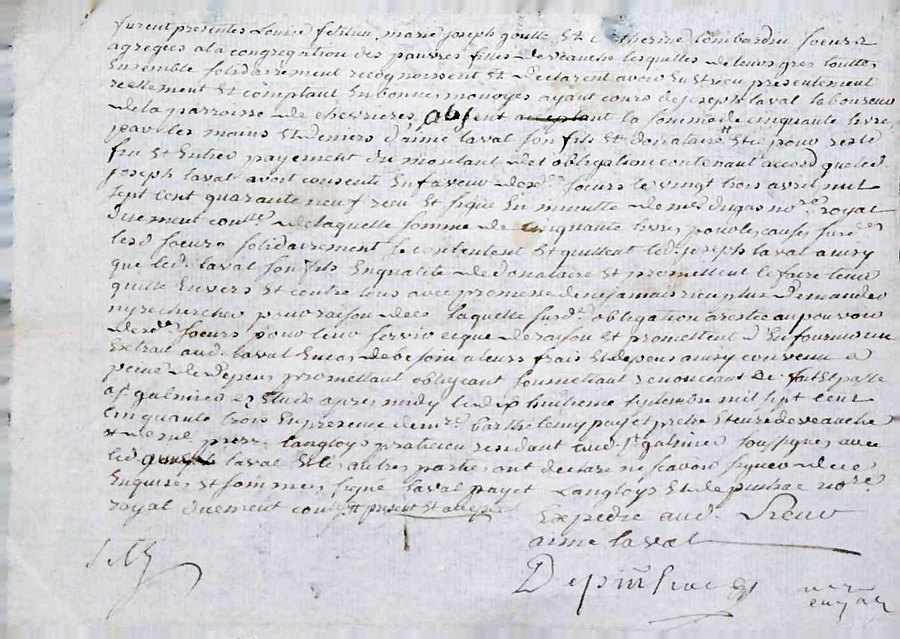 furent presentes Louise marie joseph goutte Et catherine Lombardin soeurs
agregées a la congregation des pauvres filles de veauche lesquelles de leurs gres touttes
Ensemble solidairement recognoissent Et declarent avoir Eu Et reçu presentement
reelement Et comptant En bonnes monoyes ayant cours de joseph laval laboureur
de la parroisse de chevrieres, absent la somme de cinquante livres
par les mains Et deniers d'aimé laval son fils Et donataire Et ce pour reste
fin Et Entier payement du montant de obligation contenant accord que led
joseph laval avoit consenti En faveur desd. soeurs le vingt trois avril mil
sept cent quarante neuf reçu Et signé En minutte de me dugas nore. royal
duement coutle de laquelle somme de cinquante livres pour les causes susdes
lesd soeurs solidairement se contentent Et quittent led joseph laval aussy
que led. laval son fils En qualité de donataire Et promettent le faire tenir
quitte Envers Et contre tous avec promesse de ne jamais rien plus demander
ny rechercher pour raison de ce laquelle susde. obligation a resté au pouvoir
desdes soeurs pour leur servir ce que de raison Et promettent d'En fournir un
Extrait aud. laval En cas de besoin a leurs frais Et depens aussy convenu a
peine de depens promettant obligeant soumettant renonceant &c fait Et passé
a st galmier Es Etude apres midy le dix huitieme septembre mil sept cent
cinquante trois En presence de mre. barthelemy payet pretre Et curé de veauche
Et de me pierre langloys praticien residant aud. st galmier soussignes avec
led laval Et les autres parties ont declaré ne scavoir signer de ce
Enquises Et sommées, signé laval payet Langloys Et depinhac nore.
royal duement coutle present Et acceptant
Expedié aud. Sieur
aimé laval
Depinhac